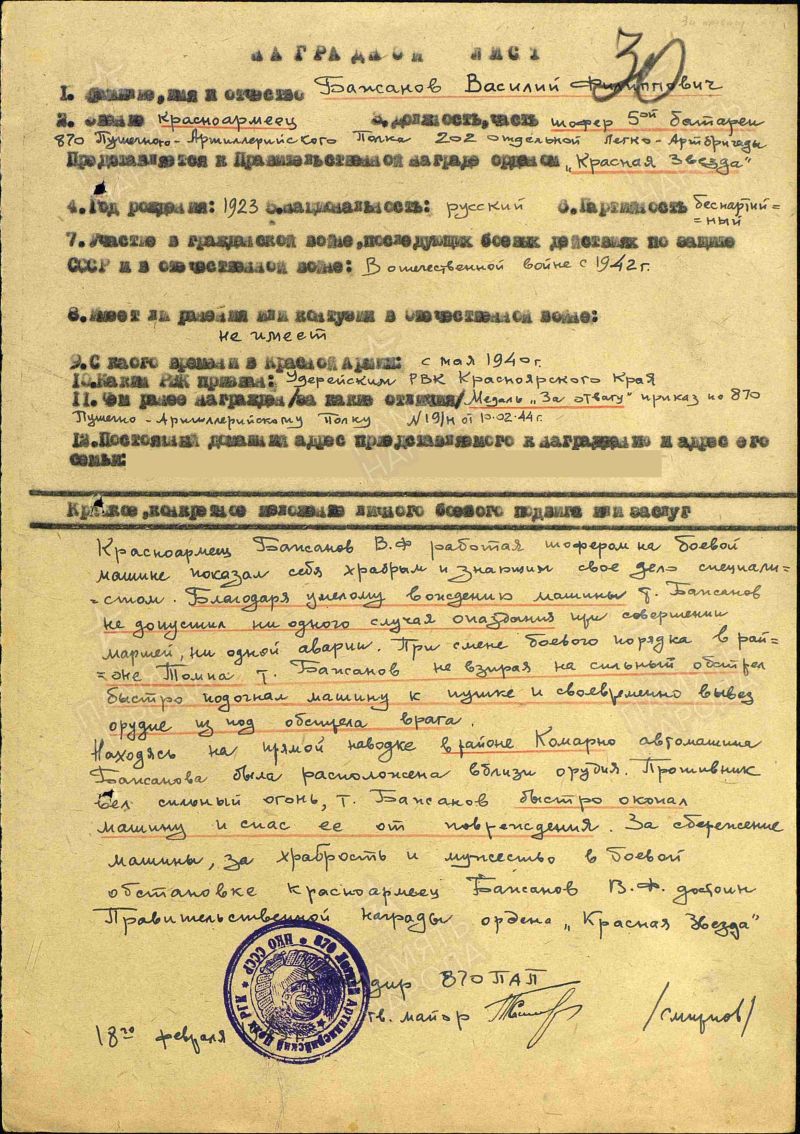 30
НАГРАДНОЙ ЛИСТ
1. Фамилие, имя и отчество Бажанов Василий Филиппович
2. Звание Красноармеец 3. Должность, часть шофер 5ой батареи
870 Пушечного-Артиллерийского Полка 202 отдельной Легко-Артбригады
Представляется к Правительственной награде орденом „Красная Звезда"
4. Год рождения: 1923 5. национальность: русский 6. Партийность беспартий=
=ный
7. Участие в гражданской войне, последующих боевых действиях по защите
СССР и в отечественной войне: В отечественной войне с 1942 г.
8. Имеет ли ранения или контузии в отечественной войне:
не имеет
9. С каого времени в Красной Армии: с мая 1940 г.
10. Каким РВК призван: Удерейским РВК Красноярского Края
11. Чем ранее награжден /за какие отличия/ Медаль „За отвагу" приказ по 870
Пушечно-Артиллерийскому Полку N 19/н от 10.02.44 г.
12. Постоянный домашний адрес представляемого к награждению и адрес его
семьи:
Краткое, конкретное изложение личного боевого подвига или заслуг
Красноармеец Бажанов В.Ф работая шофером на боевой
машине показал себя храбрым и знающим свое дело специали=
=стом. Благодаря умелому вождению машины т. Бажанов
не допустил ни одного случая опаздания при совершении
маршей, ни одной аварии. При смене боевого порядка в рай=
=оне Томпа т. Бажанов не взирая на сильный обстрел
быстро подогнал машину к пушке и своевременно вывез
орудие из под обстрела врага.
Находясь на прямой наводке в районе Комарно автомашина
Бажанова была расположена вблизи орудия. Противник
вел сильный огонь, т. Бажанов быстро окопал
машину и спас ее от повреждения. За сбережение
машины, за храбрость и мужество в боевой
обстановке красноармеец Бажанов В.Ф. достоин
Правительственной награды ордена „Красная Звезда"
дир 870 ПАП
гв. майор /Смирнов/
18го февраля
НКО СССР
870 Артиллерийский Полк РГК